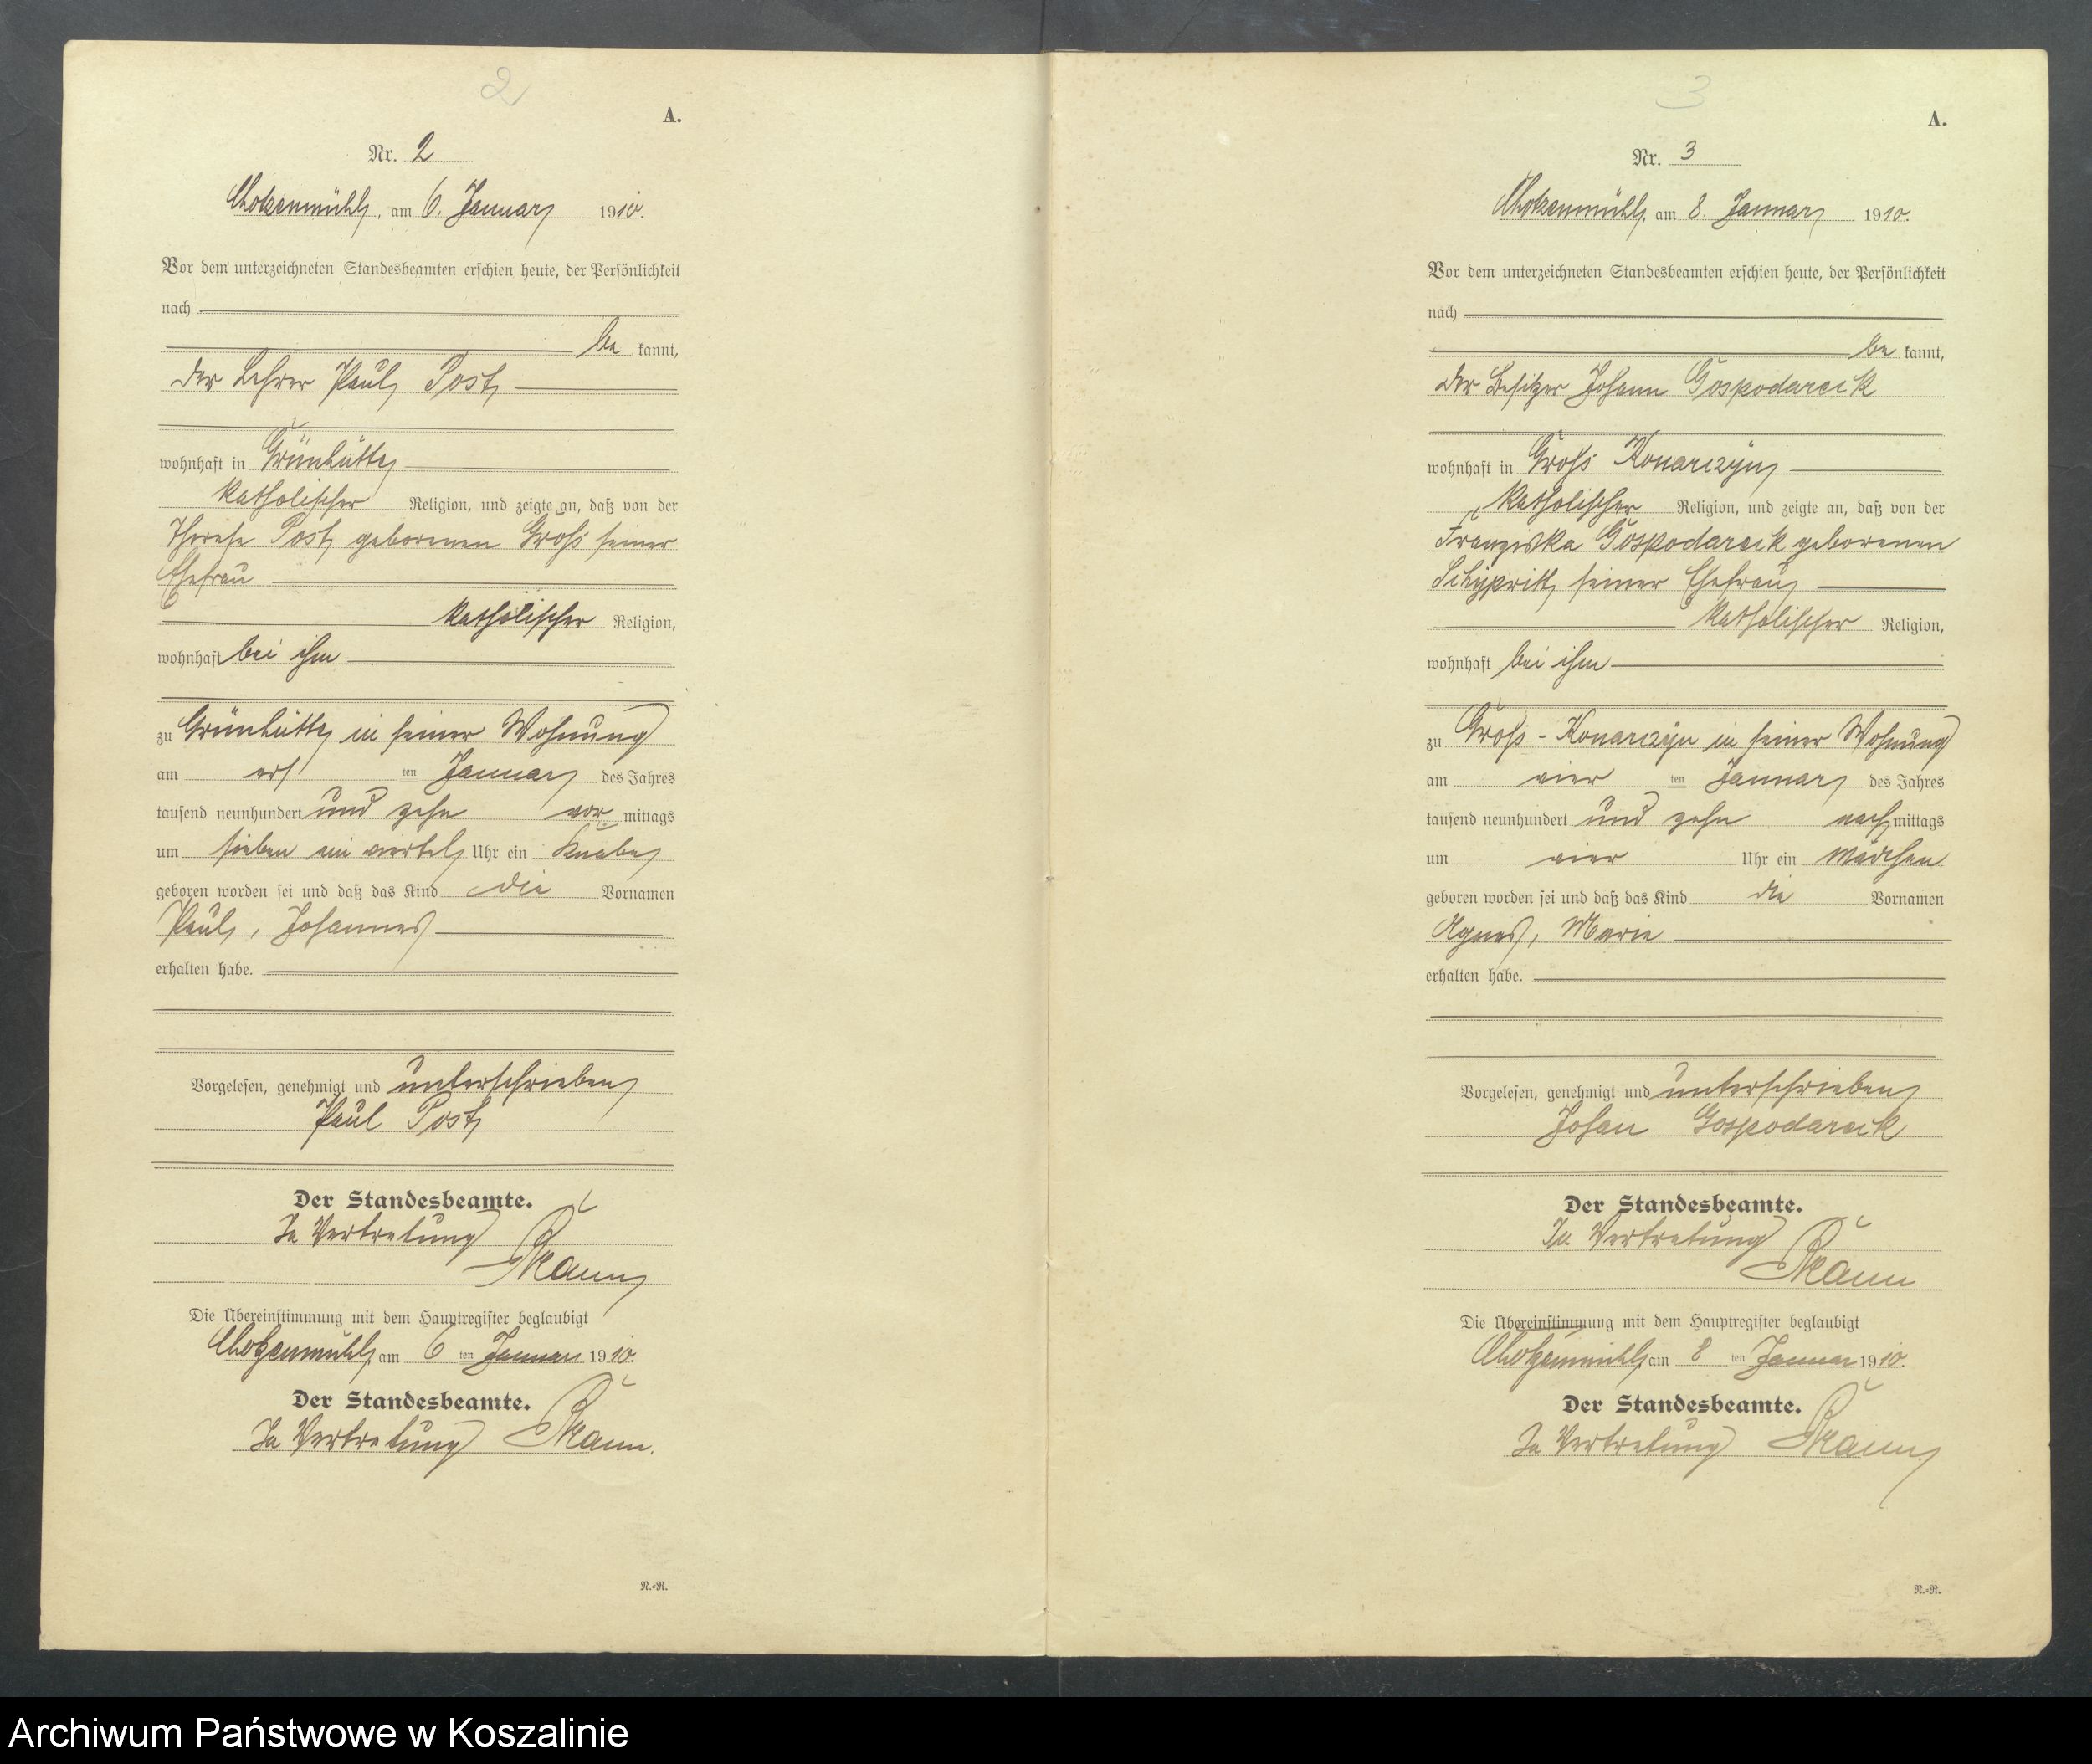 2
A.
Nr. 2
Chotzenmühl, am 6. Januar 1910.
Vor dem unterzeichneten Standesbeamten erschien heute, der Persönlichkeit
nach
be kannt,
der Lehrer Paul Post
wohnhaft in Grünhütte
katholischer Religion, und zeigte an, daß von der
Therese Post geborenen Groß seiner
Ehefrau
katholischer Religion,
wohnhaft bei ihm
zu Grünhütte in seiner Wohnung
am erst ten Januar des Jahres
tausend neunhundert und zehn vor mittags
um sieben ein viertel Uhr ein Knabe
geboren worden sei und daß das Kind die Vornamen
Paul, Johannes
erhalten habe.
Vorgelesen, genehmigt und unterschrieben
Paul Post
Der Standesbeamte.
In Vertretung
Die Übereinstimmung mit dem Hauptregister beglaubigt
Chotzenmühl, am 6 ten Januar 1910.
Der Standesbeamte.
In Vertretung
R.-R.
3
A.
Nr. 3
Chotzenmühl, am 8. Januar 1910.
Vor dem unterzeichneten Standesbeamten erschien heute, der Persönlichkeit
nach
be kannt,
der Besitzer Johann Gospodarek
wohnhaft in Groß Konarczyn
katholischer Religion, und zeigte an, daß von der
Franziska Gospodarek geborenen
seiner Ehefrau
katholischer Religion,
wohnhaft bei ihm
zu Groß-Konarczyn in seiner Wohnung
am vier ten Januar des Jahres
tausend neunhundert und zehn nach mittags
um vier Uhr ein Mädchen
geboren worden sei und daß das Kind die Vornamen
Agnes, Marie
erhalten habe.
Vorgelesen, genehmigt und unterschrieben
Johan Gospodarek
Der Standesbeamte.
In Vertretung
Die Übereinstimmung mit dem Hauptregister beglaubigt
Chotzenmühl, am 8 ten Januar 1910.
Der Standesbeamte.
In Vertretung
R.-R.
Archiwum Państwowe w Koszalinie